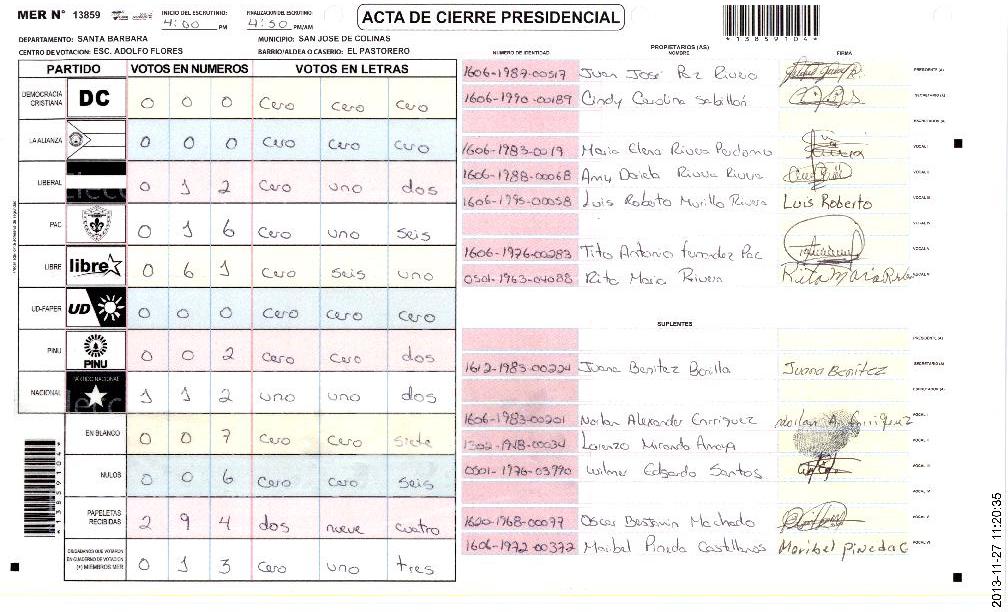 MER N° 13859 INICIO DEL ESCRUTINIO: 4:00 PM FINALIZACION DEL ESCRUTINIO: 4:50 PM/AM
ACTA DE CIERRE PRESIDENCIAL
*13859104*
DEPARTAMENTO: SANTA BARBARA MUNICIPIO: SAN JOSE DE COLINAS
CENTRO DE VOTACION: ESC. ADOLFO FLORES BARRIO/ALDEA O CASERIO: EL PASTORERO
PARTIDO VOTOS EN NUMEROS VOTOS EN LETRAS
DEMOCRACIA CRISTIANA DC 0 0 0 cero cero cero
LA ALIANZA 0 0 0 cero cero cero
LIBERAL 0 1 2 cero uno dos
PAC 0 1 6 cero uno seis
LIBRE libre 0 6 1 cero seis uno
UD-FAPER UD 0 0 0 cero cero cero
PINU PINU 0 0 2 cero cero dos
NACIONAL PARTIDO NACIONAL 1 1 2 uno uno dos
EN BLANCO 0 0 7 cero cero siete
NULOS 0 0 6 cero cero seis
PAPELETAS RECIBIDAS 2 9 4 dos nueve cuatro
CIUDADANOS QUE VOTARON
EN CUADERNO DE VOTACION
(+) MIEMBROS MER 0 1 3 cero uno tres
*13859104*
PROPIETARIOS (AS)
NUMERO DE IDENTIDAD NOMBRE FIRMA
1606-1987-00517 Juan José Paz Rivera PRESIDENTE (A)
1606-1990-00189 Cindy Carolina Sabillón SECRETARIO (A)
ESCRUTADOR (A)
1606-1983-0019 Maria Elena Rivera Perdomo VOCAL I
1606-1988-00068 Amy Rivera Rivera VOCAL II
1606-1995-00058 Luis Roberto Murillo Rivera Luis Roberto VOCAL III
VOCAL IV
1606-1976-00283 Tito Antonio Fernandez Paz VOCAL V
0501-1963-04088 Rita Maria Rivera Rita Maria VOCAL VI
SUPLENTES
PRESIDENTE (A)
1612-1983-00224 Juana Benitez Bonilla Juana Benitez SECRETARIO (A)
ESCRUTADOR (A)
1606-1983-00201 Norlan Alexander Enrriquez Norlan A. Enrriquez VOCAL I
Lorenzo Miranda Amaya VOCAL II
0501-1976-03990 Wilmer Edgardo Santos VOCAL III
VOCAL IV
1620-1968-00077 Oscar Machado VOCAL V
1606-1972-00372 Maribel Pineda Castellanos Maribel Pineda C VOCAL VI
2013-11-27 11:20:35